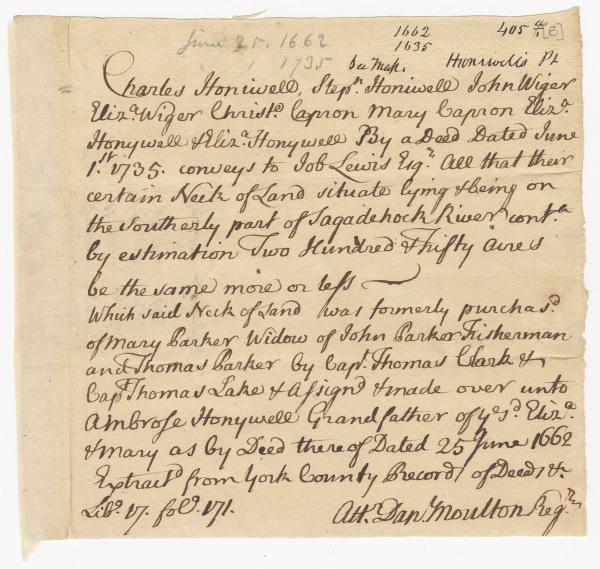 June 25, 1662
1 1735
1662
1635
405 a/1 [B]
See Map. Huniwells Pt
Charles Honiwell, Stepn. Honiwell John Wiger
Eliza. Wiger Christo. Capron Mary Capron Eliza.
Honywell & Eliza. Honywell By a Deed Dated June
1.st 1735. conveys to Job Lewis Esqr. All that their
certain Neck of Land situate lying & being on
the Southerly part of Sagadehock River conta.
by estimation Two Hundred & Fifty acres
be the same more or less
Which said Neck of Land was formerly purchasd.
of Mary Parker Widow of John Parker Fisherman
and Thomas Parker by Capt. Thomas Clark &
Capt Thomas Lake & Assignd & made over unto
Ambrose Honywell Grandfather of ye sd. Eliza.
& Mary as by Deed thereof Dated 25 June 1662
Extractd from York County Records of Deeds &.
Libo. 17. folo. 171.
Att. Danl. Moulton Regr.